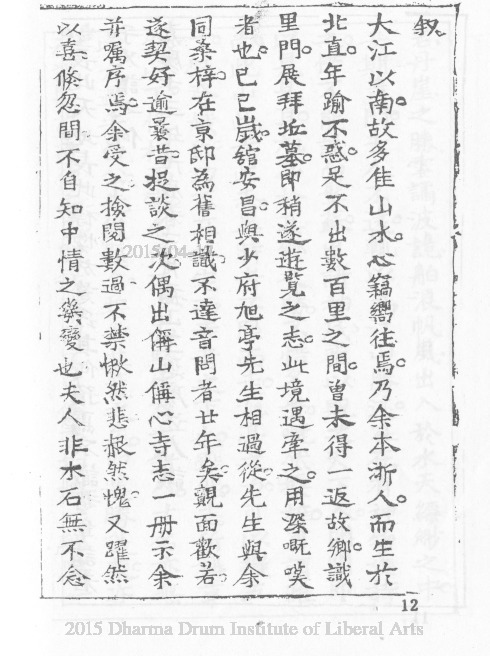 叙
大江以南故多佳山水心竊嚮往焉乃余本浙人而生於
北直年踰不惑足不出數百里之間曾未得一返故鄉識
里門展拜坵墓即稍遂遊覽之志此境遇牽之用深嘅嘆
者也己巳歲舘安昌與少府旭亭先生相過從先生與余
同桑梓在京邸為舊相識不達音問者廿年矣覿面歡若
遂契好逾曩昔捉談之次偶出偁山偁心寺志一册示余
并嘱序焉余受之撿閱數過不禁愀然悲赧然愧又躍然
以喜倏忽間不自知中情之變也夫人非水石無不念
12
2015-04-17
2015 Dharma Drum Institute of Liberal Arts